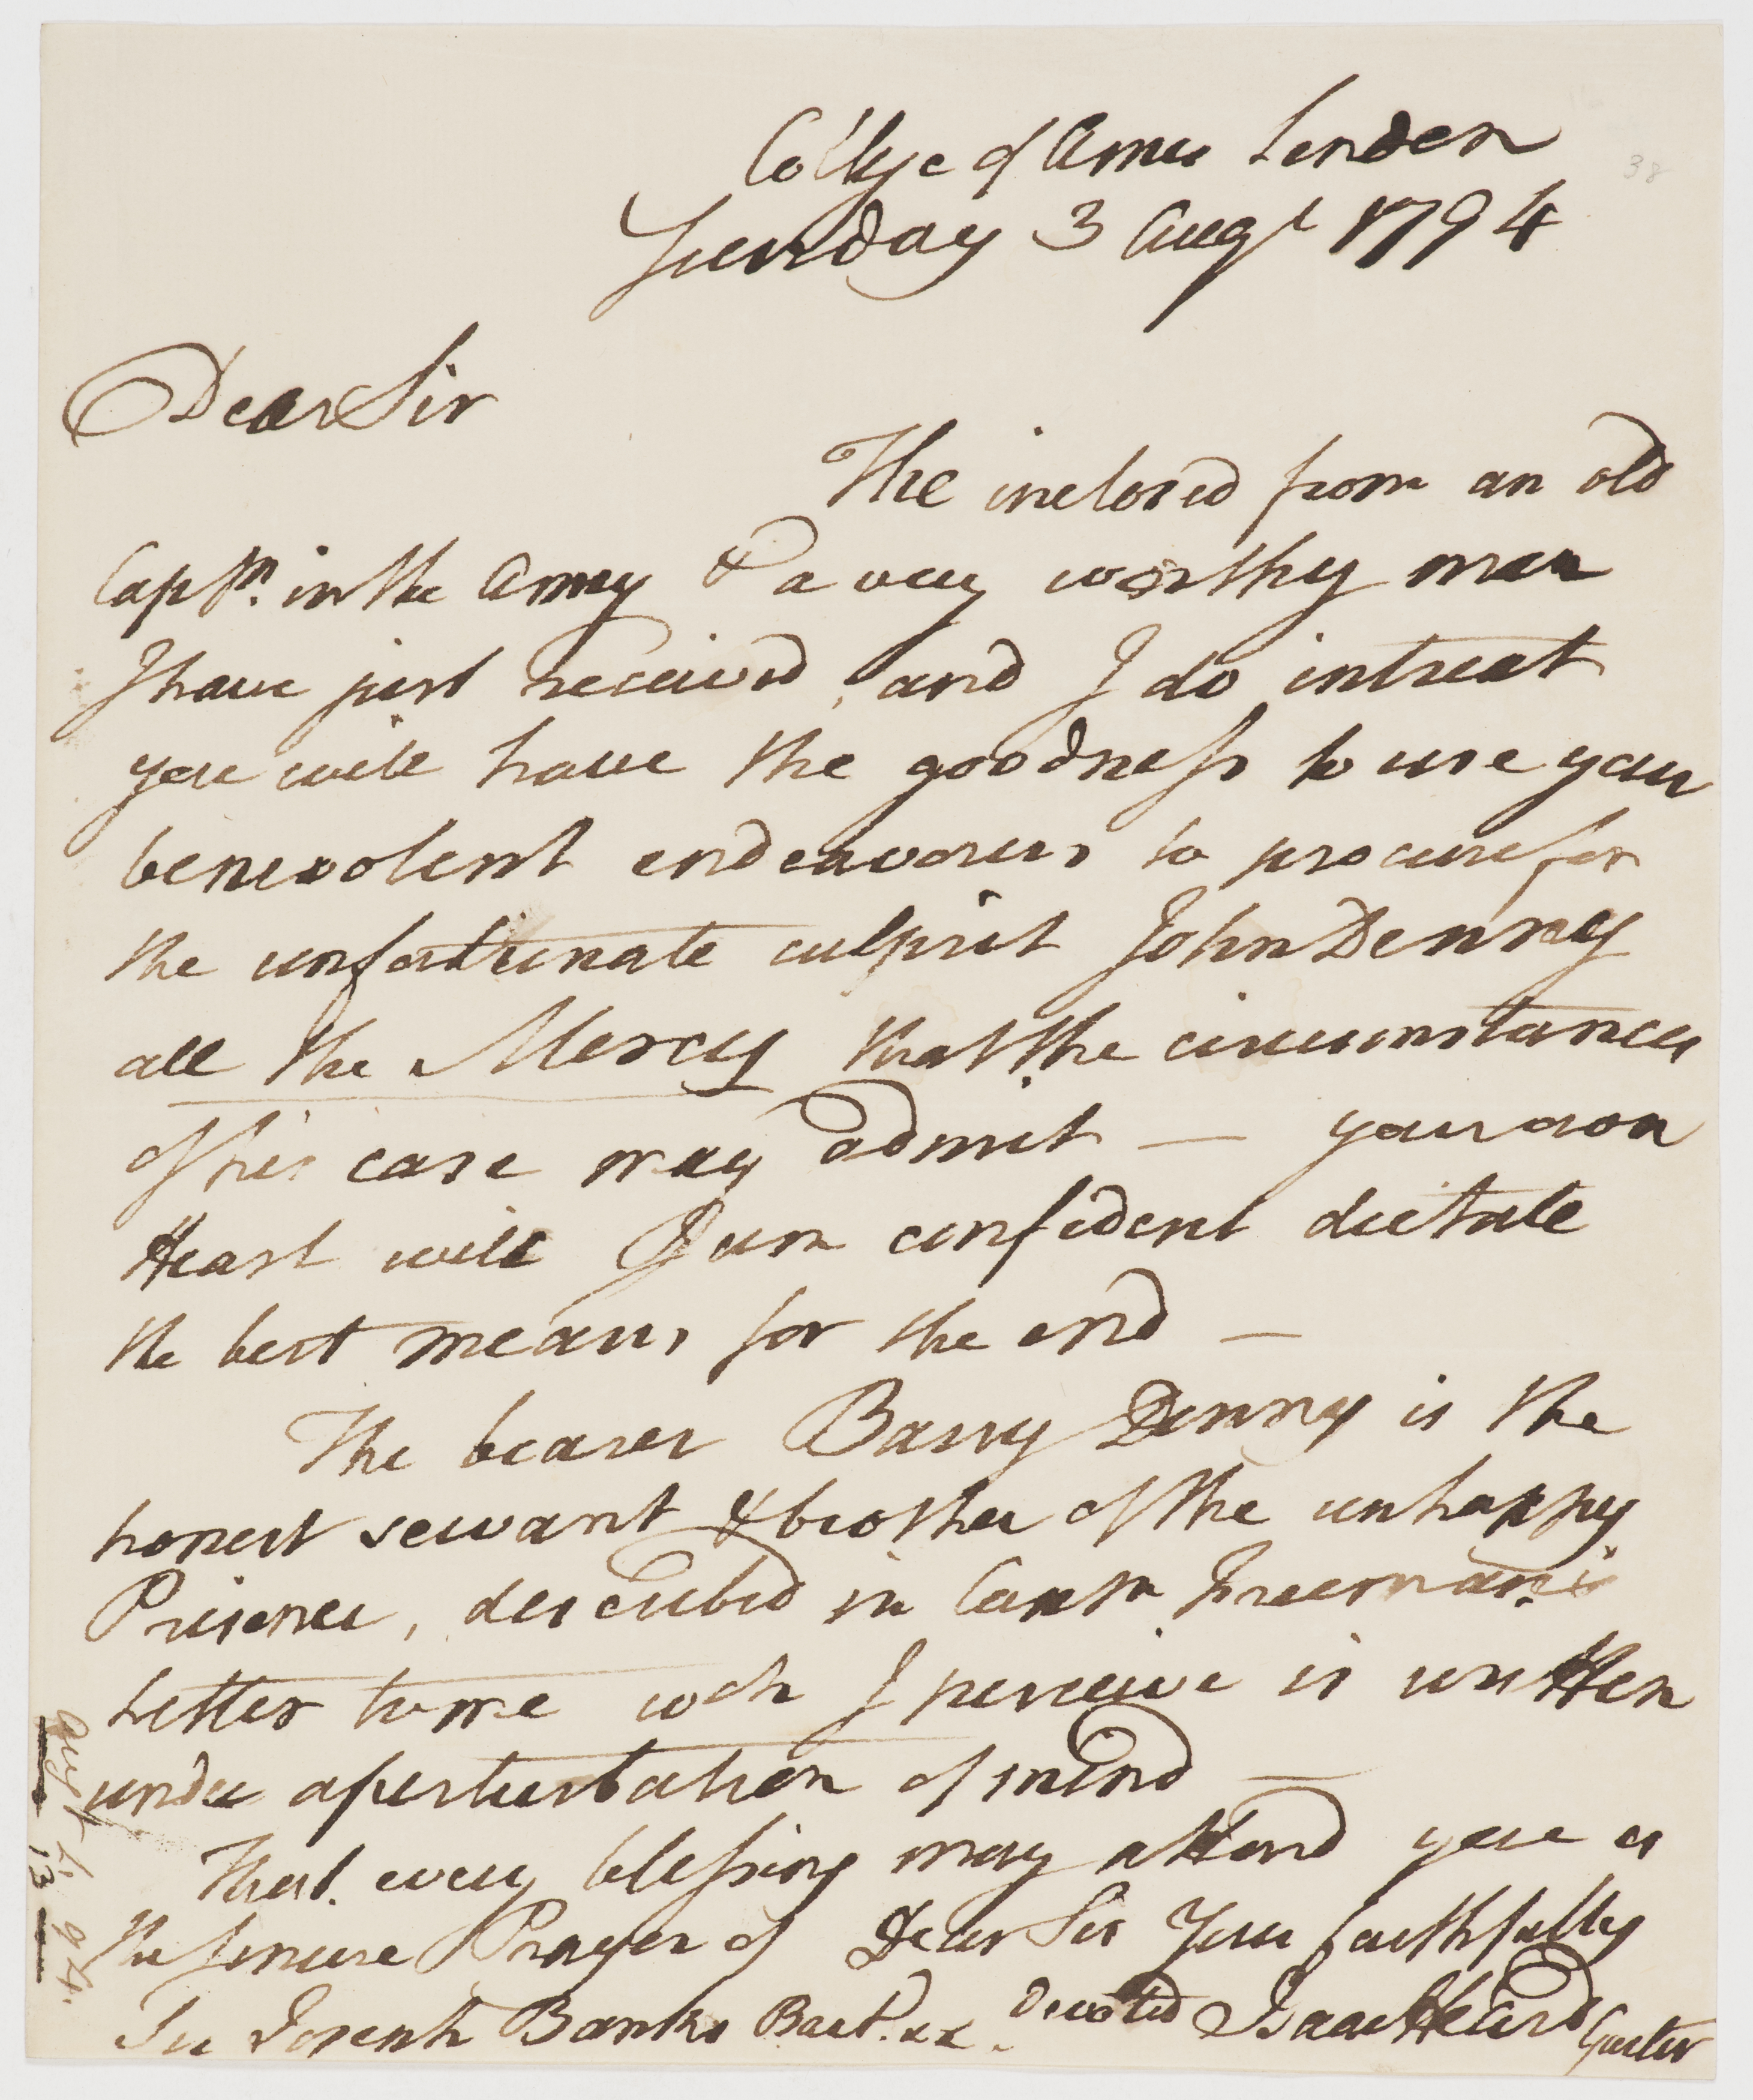 College of Arms London
Sunday 3 Augt 1794
38
Dear Sir
The inclosed from an old
Captn. in the Army & a very worthy man
I have just received, and I do intreat
you will have the goodness to use your
benevolent endeavours to procure for
the unfortunate culprit John Denny
all the Mercy that the circumstances
of his case may admit — your own
Heart will I am confident dictate
the best means for the end —
The bearer Barry Denny is the
honest servant & brother of the unhappy
Prisoner, described in Captn Freeman's
Letter to me wch I perceive is written
under a perturbation of mind —
That every blessing may attend you is
the sincere Prayer of Dear Sir Your faithfully
Sir Joseph Banks Bart. &c. devoted Isaac Heard Garter
13
94.